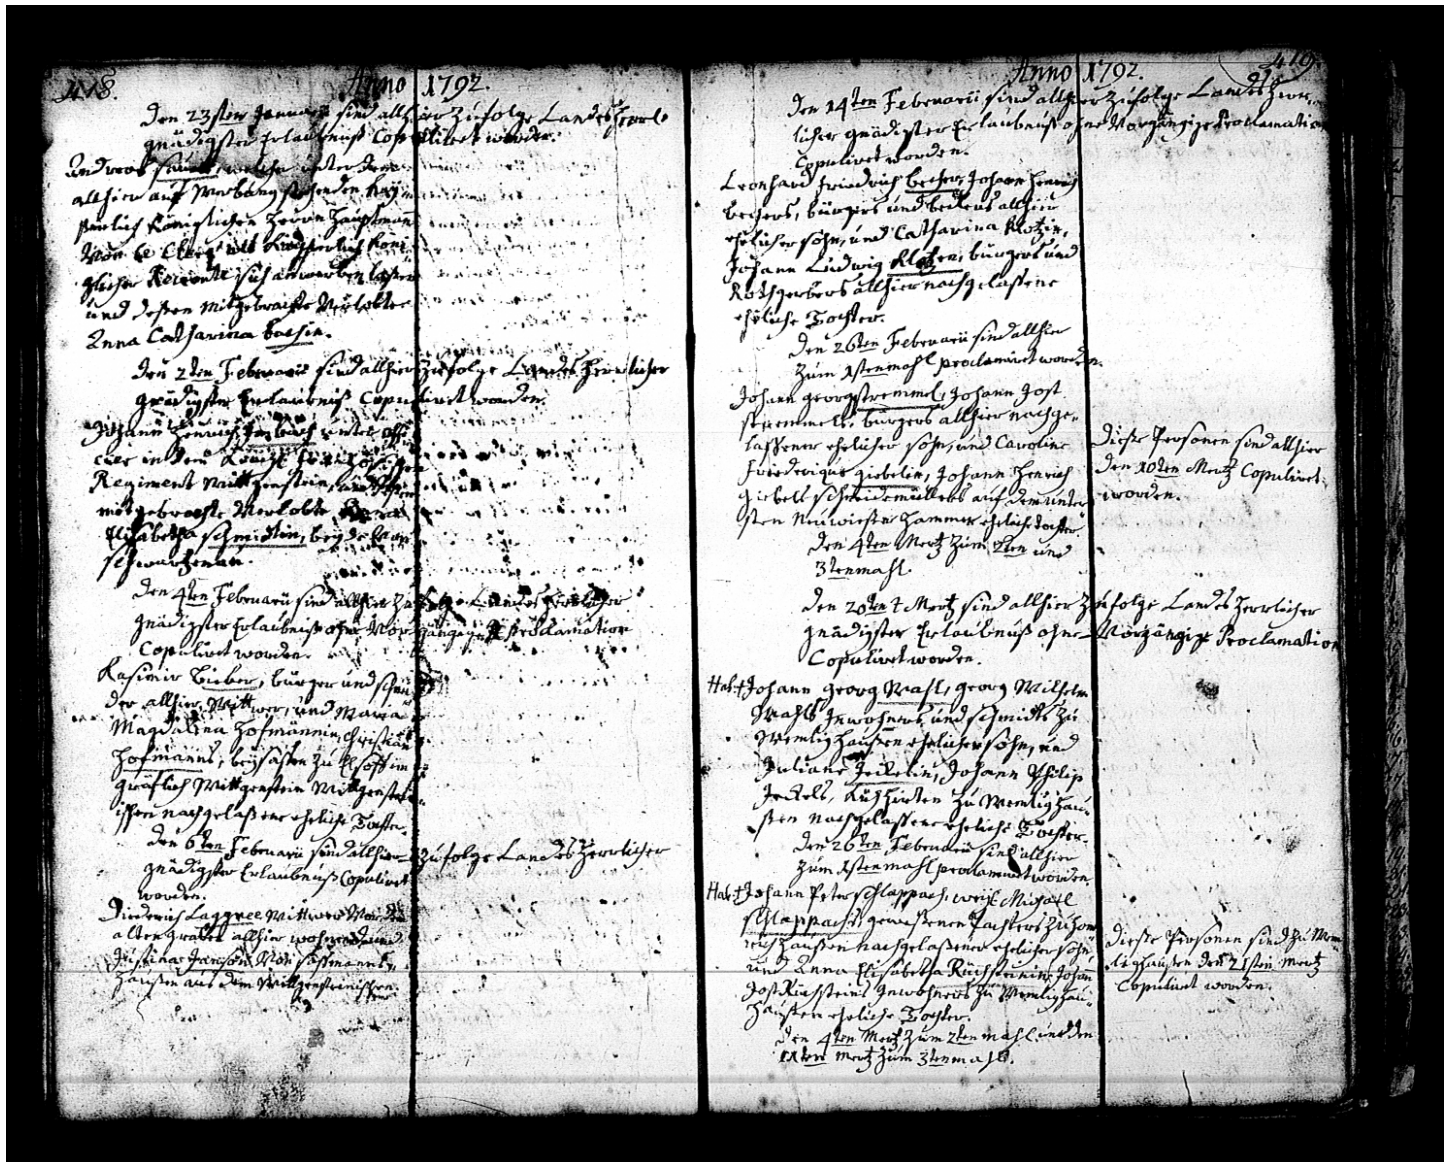 418.
Anno 1792.
Den 23sten Januarii sind allhier Zufolge LandesHerrl.
gnädigster Erlaubnuß Copuliret worden.
Andreas welcher unter dem
allhier auf Werbung stehenden Kay-
serlich Königlichen Herrn Hauptmann
Von le
glicher sich anwerben laßen
und deßen mitgebrachte Verlobte
Anna Catharina Bachin.
Den 2ten Februarii sind allhier Zufolge Landes Herrlicher
gnädigster Erlaubnuß Copuliret worden.
Johann Henrich unter
in dem
Regiment Wittgenstein, und deßen
mitgebrachte Verlobte
Elisabetha Schmidtin, beyde Von
Schwartzenau.
Den 4ten Februarii sind allhier Zufolge Landes Herrlicher
gnädigster Erlaubnuß ohne Vorgängige Proclamation
Copuliret worden.
Kasimir Bieber, burger und schnei-
der allhier, Wittwer, und Maria
Magdalena Hofmännin, Christian
Hofmanns, beysaßen zu Elsoff im
gräflich Wittgenstein Wittgenstein-
ischen nachgelaßene eheliche Tochter.
Den 6ten Februarii sind allhier Zufolge LandesHerrlicher
gnädigster Erlaubnuß Copuliret
worden.
Diederich Wittwer Von
alten graben allhier wohnend und
Von Saßmanns-
haußen aus dem Wittgensteinischen.
419.
Anno 1792.
Den 14ten Februarii sind allhier Zufolge LandesHerr-
licher gnädigster Erlaubnuß ohne Vorgängige Proclamation
Copuliret worden.
Leonhard Friedrich Becher, Johann Henrich
Bechers, bürgers und beckers allhier
ehelicher sohn, und Catharina Klotzin,
Johann Ludwig Klotzen, burgers und
Rothgerbers allhier nachgelaßene
eheliche Tochter.
Den 26ten Februarii sind allhier
Zum 1stenmahl proclamiret worden.
Johann georg Stremmel, Johann Jost
Stremmels, bürgers allhier nachge-
laßener ehelicher sohn, und Caroline
Friederique giebelin, Johann Henrich
giebels schneidemüllers auf dem unter-
sten Neuwießer Hammer ehelich. tochter.
Den 4ten Mertz Zum 2ten und
3tenmahl.
Dieße Personen sind allhier
den 10ten Mertz Copuliret
worden.
Den 20ten Mertz sind allhier Zufolge Landes Herrlicher
gnädigster Erlaubnuß ohne Vorgängige Proclamation
Copuliret worden.
Hab. † Johann georg Mahl, georg Wilhelm
Mahls Inwohners und schmidts Zu
Wemlighaußen ehelicher sohn, und
Juliane Jeckelin, Johann Philip
Jeckels, Kuhhirten Zu Wemlighau-
ßen nachgelaßene eheliche Tochter.
Den 26ten Februarii sind allhier
Zum 1stenmahl proclamiret worden.
Hab. † Johann Peter Schlappach, weyl. Michael
Schlappachs, geweßenen Pachters zu Hom-
righaußen nachgelaßener ehelicher sohn
und Anna Elisabetha Rückhteinin, Johann
Jost Inwohners Zu Wemlighau-
haußen eheliche Tochter.
Den 4ten Mertz Zum 2ten mahl und den
11ten Mertz Zum 3tenmahl.
Dieße Personen sind Zu Wem-
lighaußen den 21sten Mertz
Copuliret worden.